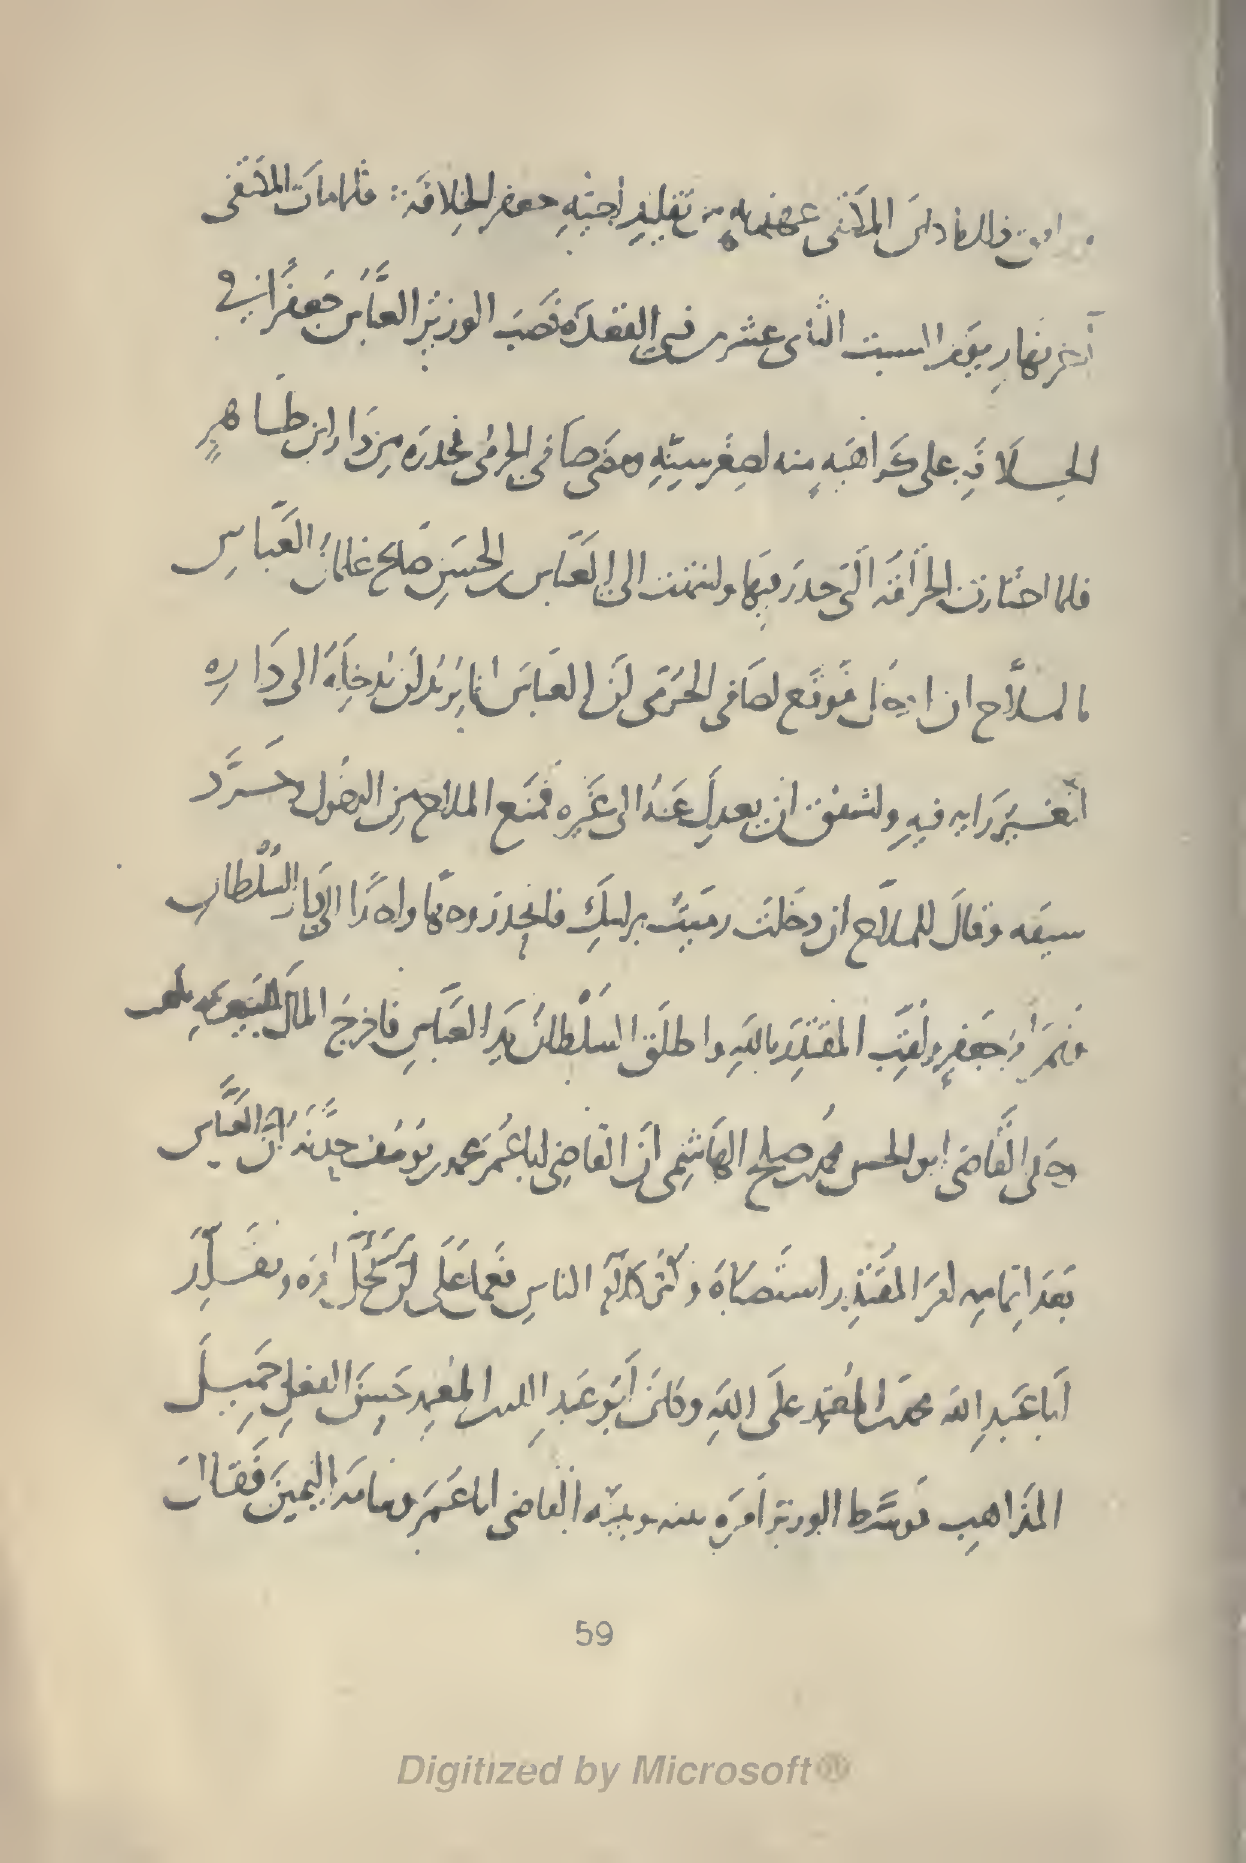 المكتفى عهد به من تقليد أخيه جعفر الخلافة فلما مات المكتفى
آخر نهار يوم السبت الثانى عشر من ذى القعدة نصب الوزير العباس جعفرا فى
الخلافة على كراهية منه لصغر سنه ومضى صافى الحرمى فحدره من دار ابن طاهر
فلما اجتازت الحراقة التى حدر فيها وانتهت الى دار العباس بن الحسن صاح غلمان العباس
بالملاح ان ادخل فوقع لصافى الحرمى أن العباس انما يريد أن يدخله الى داره
لتغير رأيه فيه وأشفق ان يعدل عنه الى غيره فمنع الملاح من الدخول وجرد
سيفه وقال للملاح ان دخلت رميت برأسك فانحدر وجها واحدا الى دار السلطان
فتم أمر جعفر ولقب المقتدر بالله واطلق السلطان يد العباس فاخرج المال للبيعة
حكى القاضى ابو الحسن محمد بن صالح الهاشمى أن القاضى أبا عمر محمد بن يوسف حدثه أن العباس
بعد اتمامه أمر المقتدر استصباه وكثر كلام الناس فعمل على أن يحل أمره ويقلد
أبا عبد الله محمد بن المعتمد على الله وكان أبو عبد الله بن المعتمد حسن الفعل جميل
المذاهب فوسط الوزير أمره بينه وبينه القاضى أبا عمر وسامه اليمين فقال
59
Digitized by Microsoft®